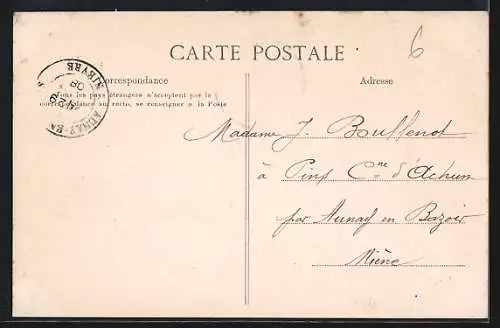 CARTE POSTALE
6
Correspondance
Adresse
Tous les pays étrangers n'acceptent pas la
correspondance au recto, se renseigner à la Poste
NIEVRE
08
AUNAY-EN
Madame J. Boullenot
à Pins Cne d'Achun
par Aunay en Bazois
Nièvre